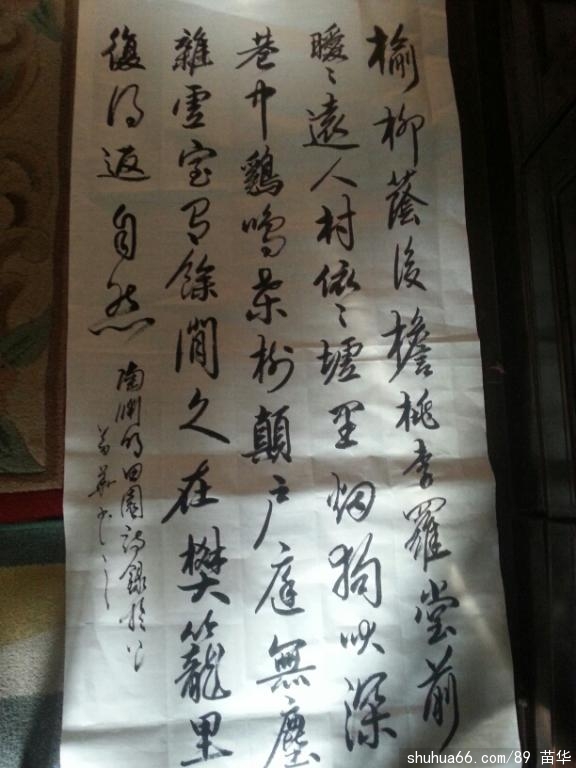 榆柳蔭後檐桃李羅堂前
曖〻遠人村依〻墟里烟狗吠深
巷中鷄鳴桒樹顛户庭無塵
雜虚室有餘閒久在樊籠里
復得返自然
陶渊明田園詩錄於
苗華书
shuhua66.com/89 苗华